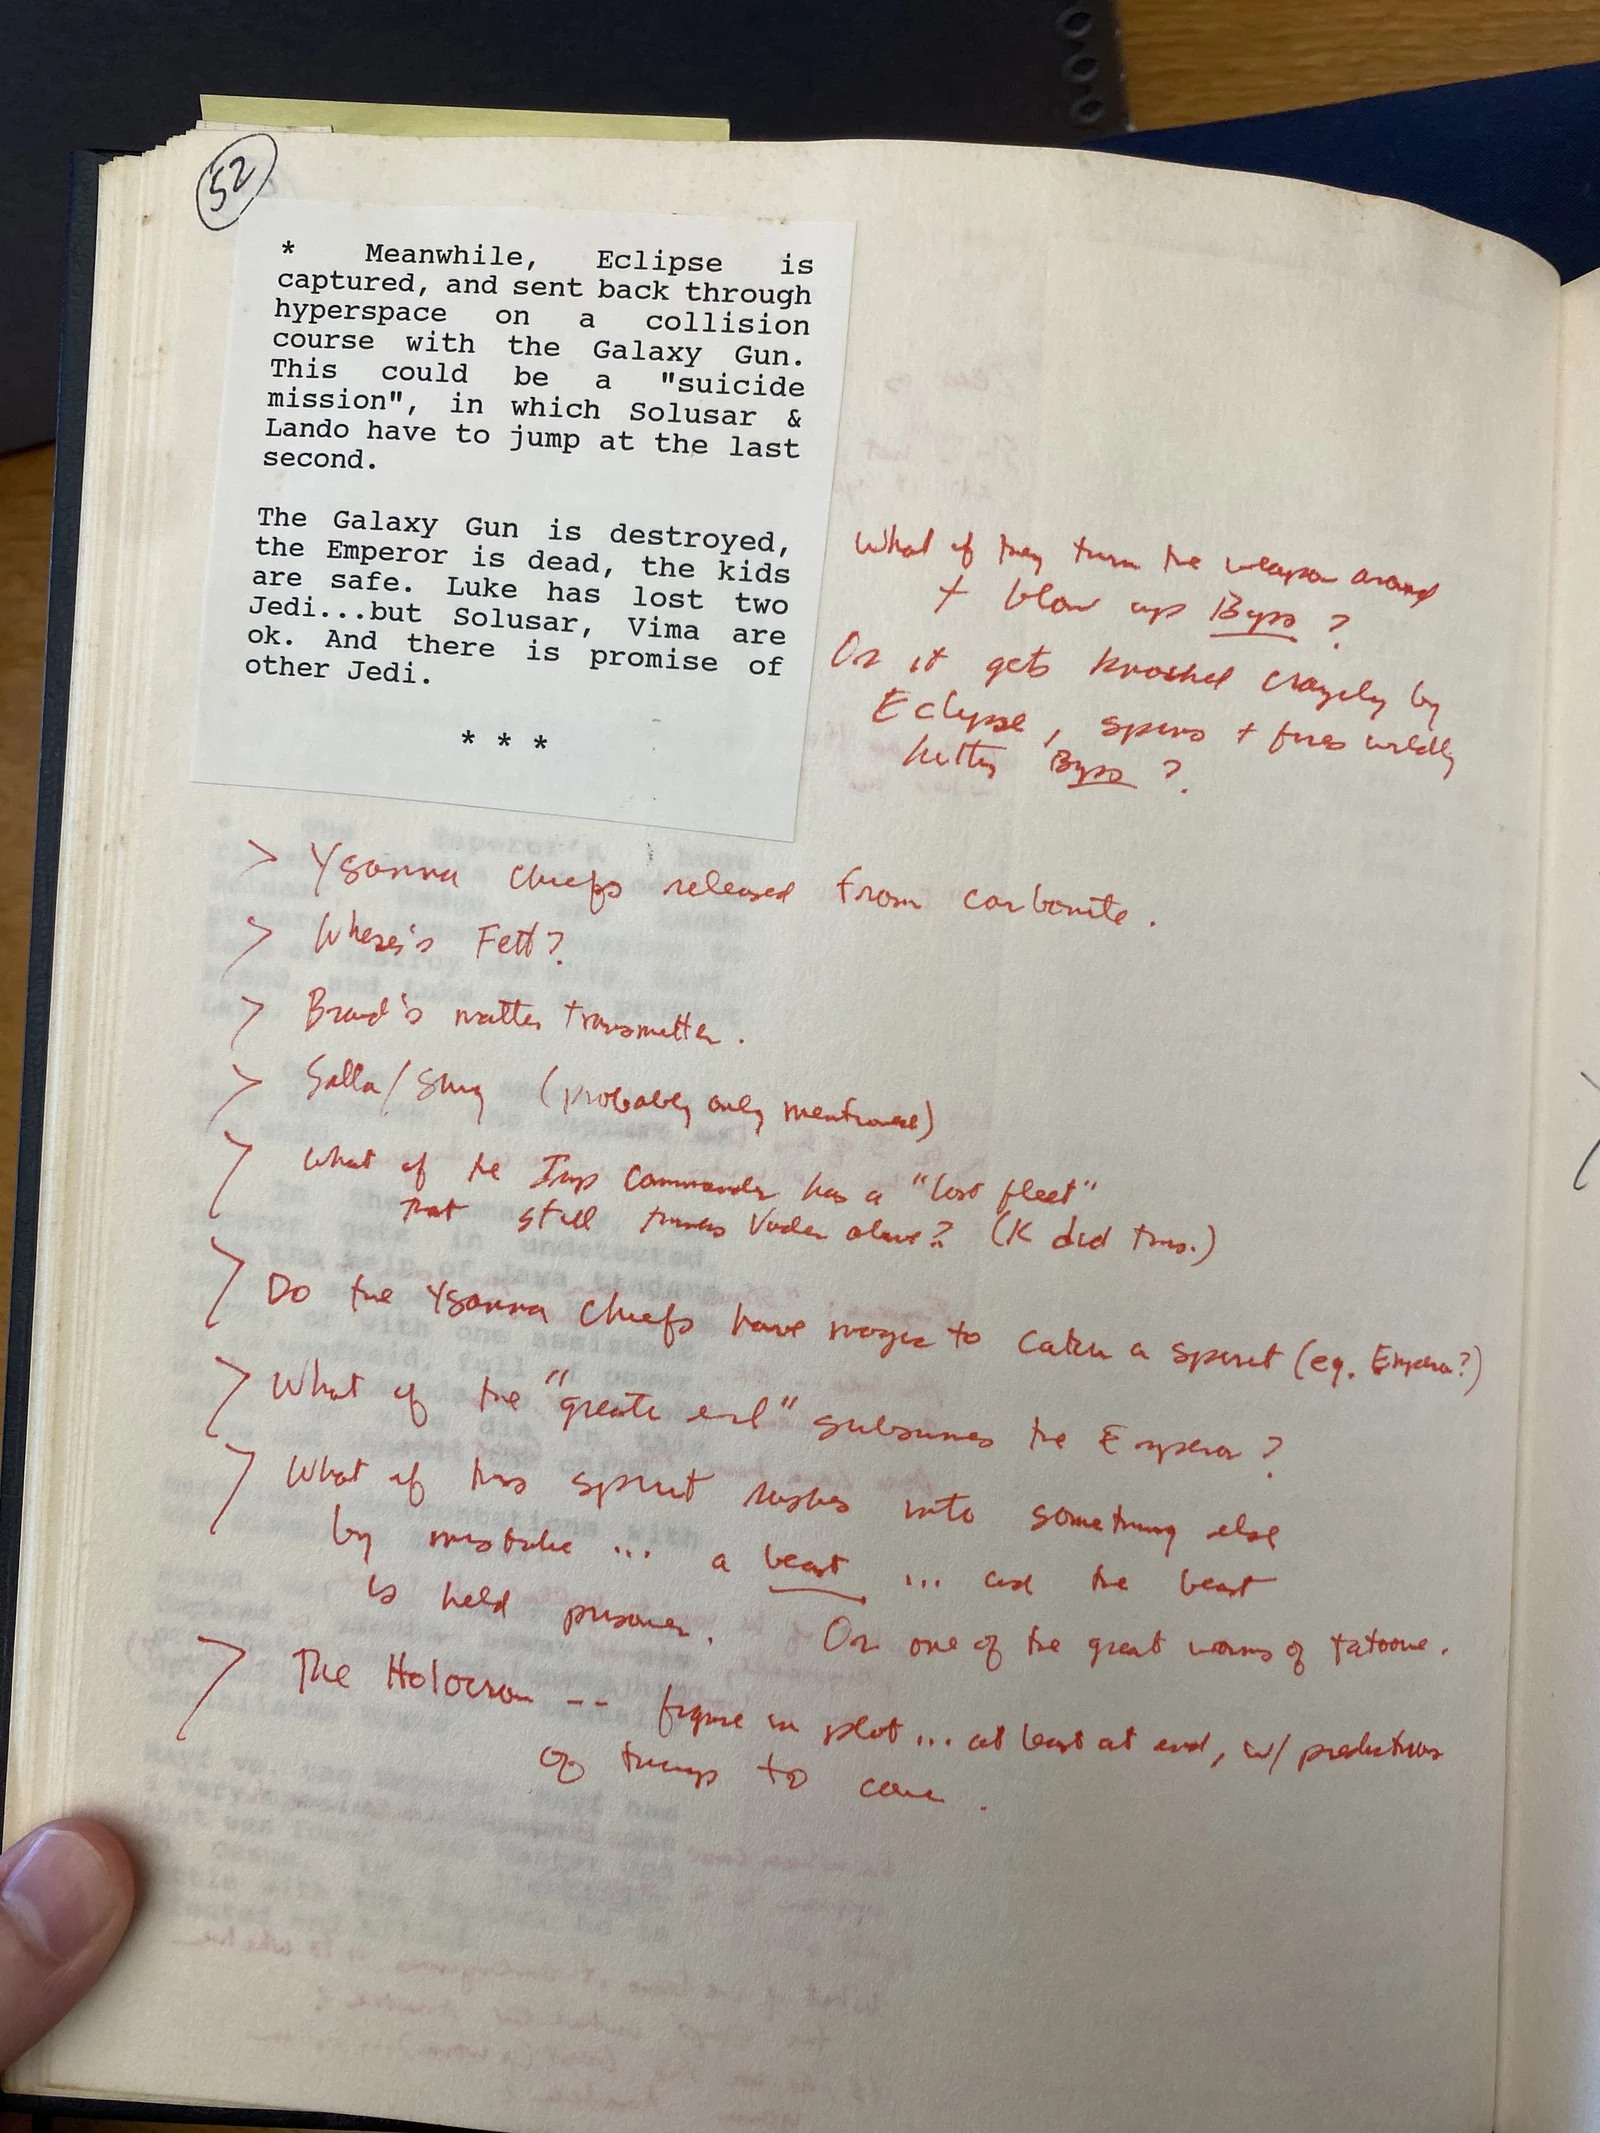 52
* Meanwhile, Eclipse is
captured, and sent back through
hyperspace on a collision
course with the Galaxy Gun.
This could be a "suicide
mission", in which Solusar &
Lando have to jump at the last
second.
The Galaxy Gun is destroyed,
the Emperor is dead, the kids
are safe. Luke has lost two
Jedi...but Solusar, Vima are
ok. And there is promise of
other Jedi.
* * *
What if they turn the weapon around
+ blow up Byss?
Or it gets knocked crazily by
Eclipse, spins + fires wildly
hitting Byss?
> Ysanna Chiefs released from carbonite.
> Where's Fett?
> Brand's matter transmitter.
> Salla/Shug (probably only mentioned)
> What if the Imp Commander has a "lost fleet"
that still thinks Vader alive? (K did this.)
> Do the Ysanna Chiefs have magic to catch a spirit (eg. Emperor?)
> What if the "greater evil" subsumes the Emperor?
> What if this spirit rushes into something else
by mistake ... a beast ... and the beast
is held prisoner. Or one of the great worms of Tatooine.
> The Holocron -- figure in plot ... at least at end, w/ predictions
of things to come.